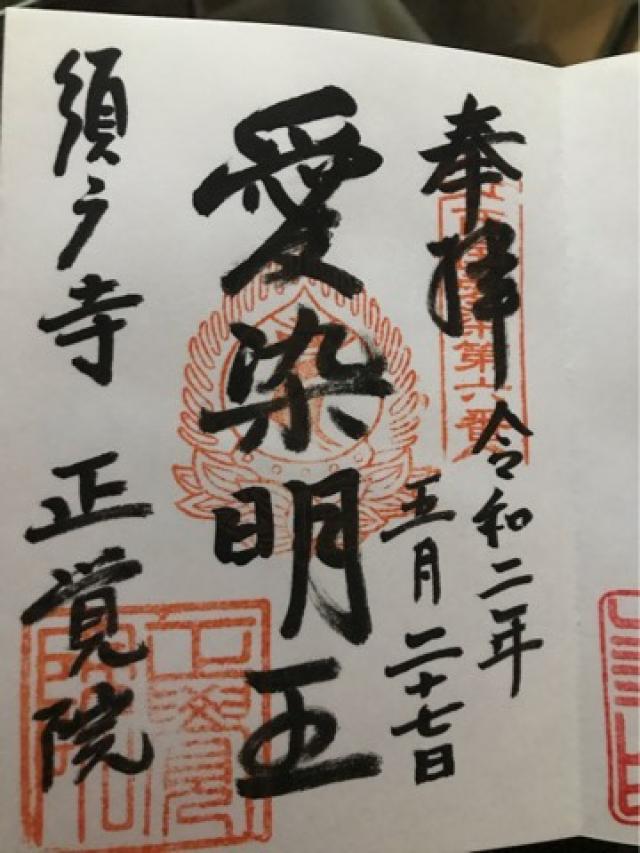 奉拝
令和二年
五月二十七日
愛染明王
須戸寺 正覚院
正覺
院印